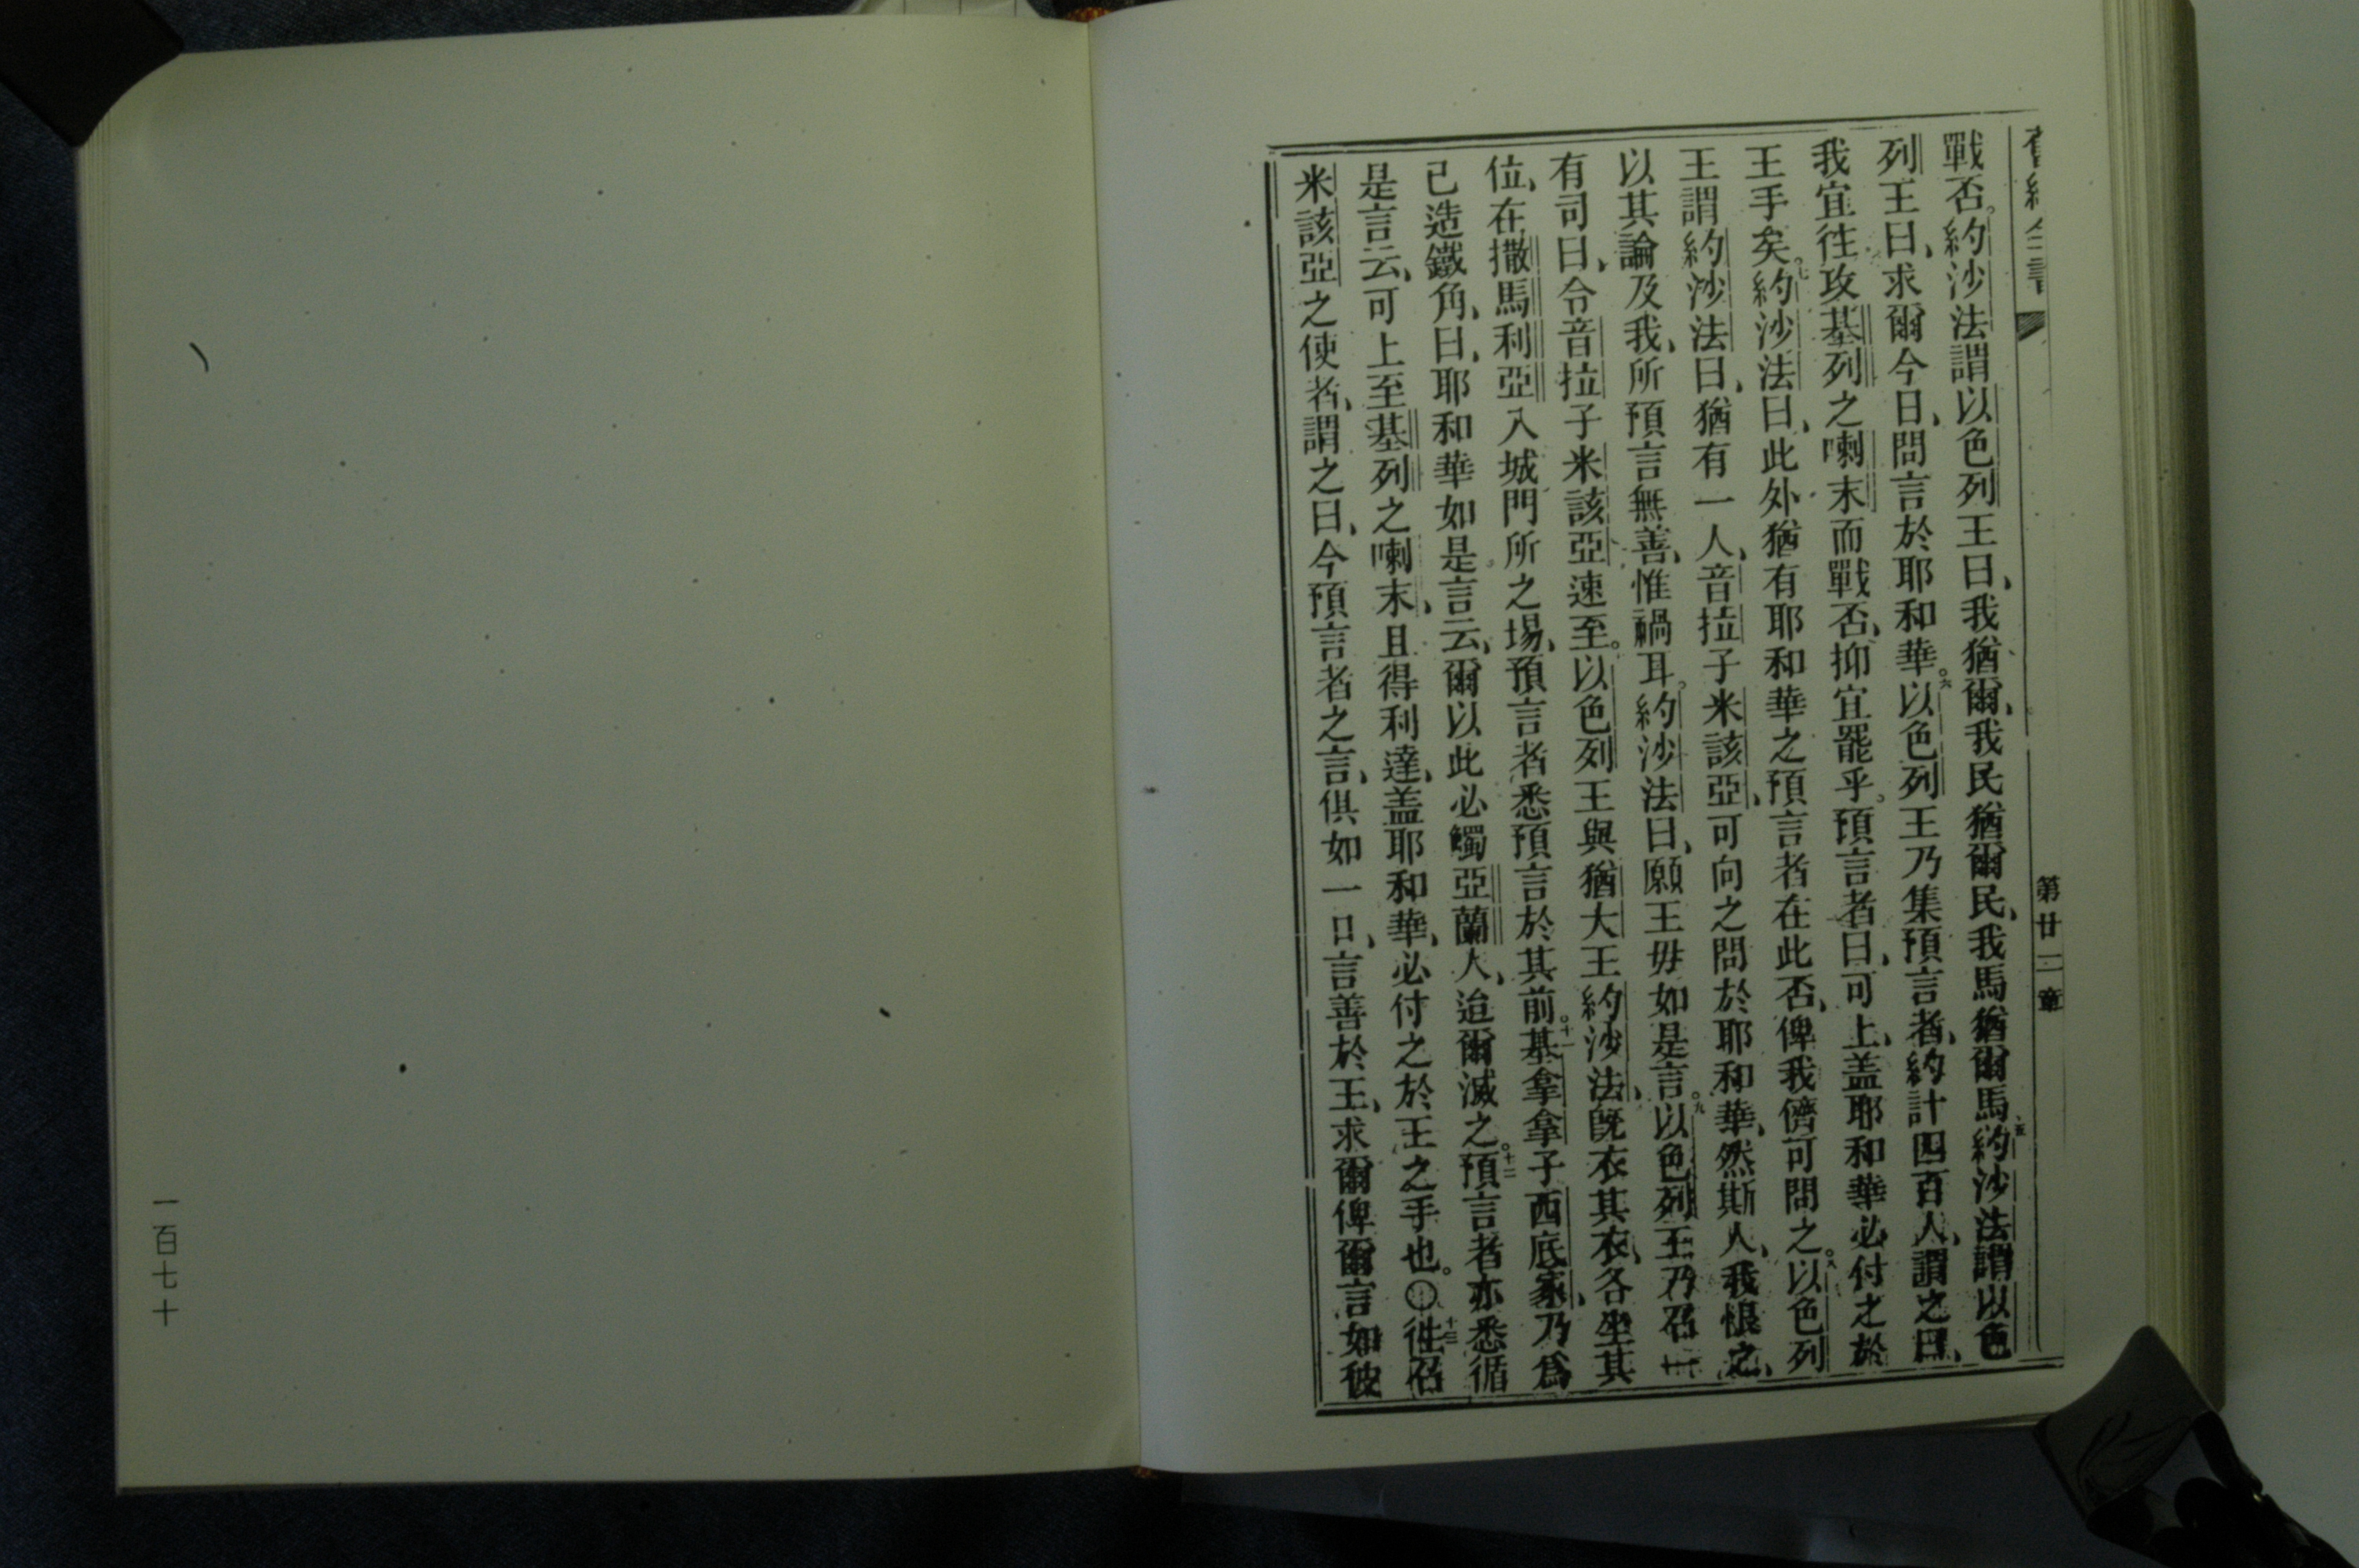 舊約全書 第廿二章
戰否。約沙法謂以色列王曰、我猶爾、我民猶爾民、我馬猶爾馬、五約沙法謂以色
列王曰、求爾今日、問言於耶和華。六以色列王乃集預言者、約計四百人、謂之曰、
我宜往攻基列之喇末而戰否、抑宜罷乎。預言者曰、可上、盖耶和華必付之於
王手矣。七約沙法曰、此外猶有耶和華之預言者在此否、俾我儕可問之。八以色列
王謂約沙法曰、猶有一人、音拉子米該亞、可向之問於耶和華、然斯人、我恨之、
以其論及我、所預言無善、惟禍耳。約沙法曰、願王毋如是言。九以色列王乃召一
有司曰、令音拉子米該亞速至。以色列王與猶大王約沙法、既衣其衣、各坐其
位、在撒馬利亞入城門所之場、預言者悉預言於其前。十一基拿拿子西底家、乃爲
己造鐵角、曰、耶和華如是言云、爾以此必觸亞蘭人、迨爾滅之。十二預言者亦悉循
是言云、可上至基列之喇末、且得利達、盖耶和華、必付之於王之手也。〇十三往召
米該亞之使者、謂之曰、今預言者之言、俱如一口、言善於王、求爾俾爾言如彼
一百七十